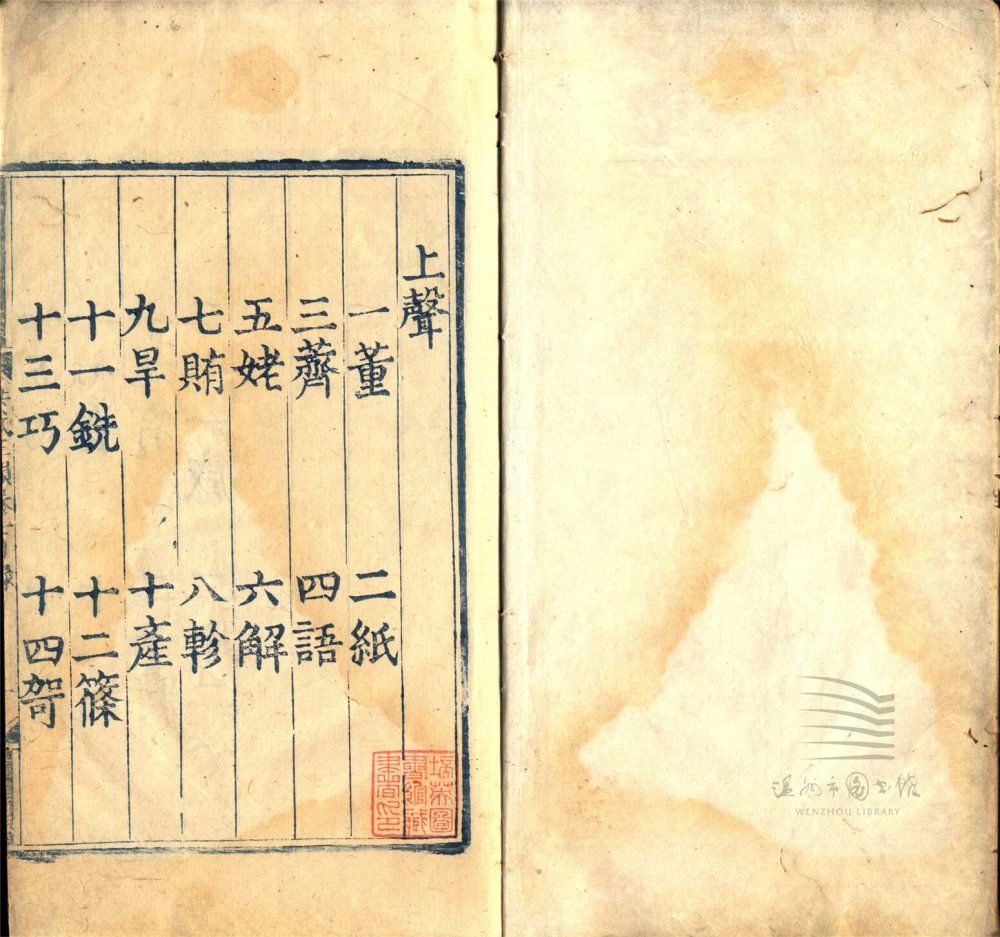 上聲
一董 二紙
三薺 四語
五姥 六解
七賄 八軫
九旱 十產
十一銑 十二篠
十三巧 十四哿
温州市图书馆
WENZHOU LIBRARY